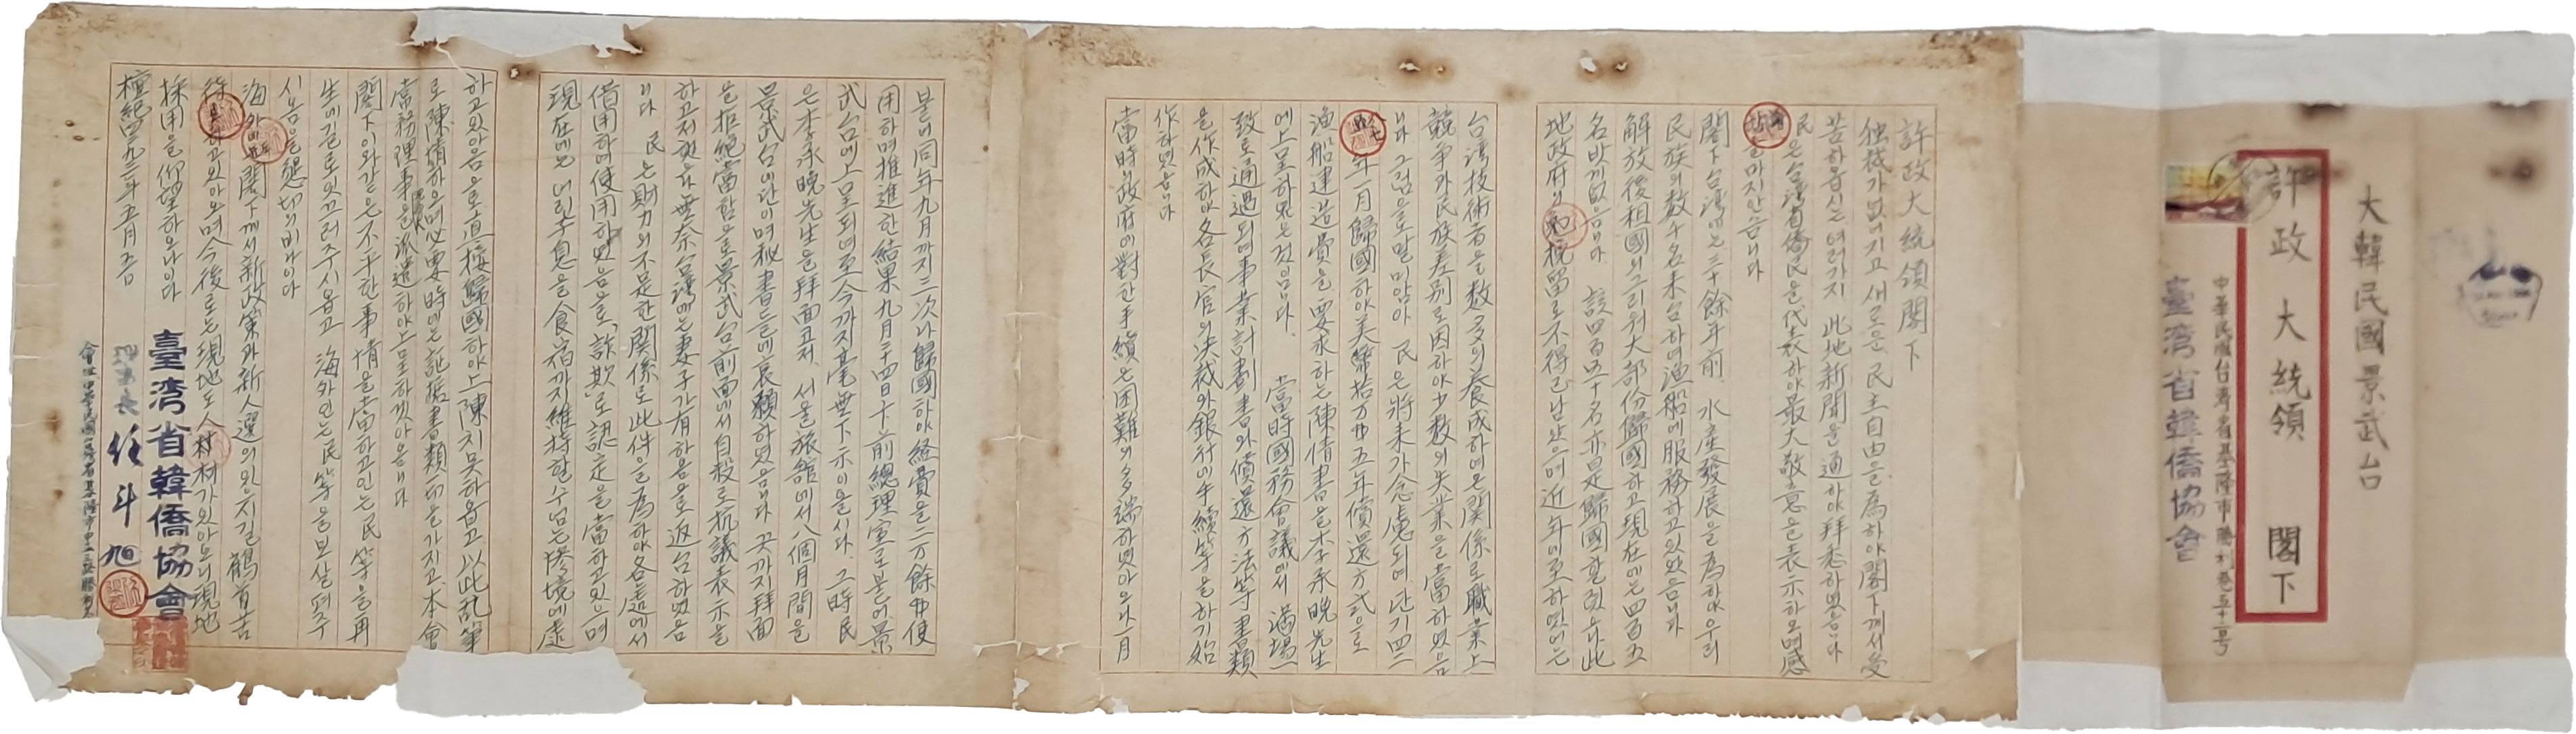 大韓民國景武台
許政 大統領 閣下
中華民國台湾省基隆市勝利巷五十二号
臺湾省韓僑協會
許政大統領閣下
独裁가 없어지고 새로운 民主自由를 爲하야 閣下께서 受
苦하옵시는 여러가지 此地新聞을 通하야 拜悉하였음니다
民은 台湾省僑民을 代表하야 最大敬意을 表示하오며 感
마지안슴니다
閣下 台湾에는 三十餘年前 水產發展을 為하야 우리
民族의 数千名 来台하여 漁船에 服務하고 있었음니다
解放後 祖國의 그리워 大部份 歸國하고 現在에는 四百五
名밧끼 없음니다 該四百五十名亦是 歸國할렷으나 此
地政府의 挽留로 不得已 남았으며 近年에 至하였어는
台湾技術者을 数多의 養成하여는 関係로 職業上
競争과 民族差別로 因하야 少数의 失業을 當하였음
니다 그럼으로 말미암아 民은 將来가 念慮되여 단기四二
年一月 歸國하야 美幣拾万弗 五年償還方式으로
漁船建造費을 要求하는 陳情書을 李承晩先生
에 上呈하였든 것임니다. 當時 國務會議에서 満場一
致로 通過되여 事業計劃書와 償還方法等 書類
을 作成하야 各長官의 決裁와 銀行에 手續等을 하기 始
作하였음니다
當時의 政府에 對한 手續은 困難의 多端하였아오나 一月
붙어 同年九月까지 三次나 歸國하야 経費을 二万餘弗 使
用하며 推進한 結果 九月二十四日十前 總理室로붙어 景
武台에 上呈되여 至今까지 毫無下示이을시다. 그時 民
은 李承晩先生을 拜面코저 서울旅館에서 八個月間을
景武台에 단이며 秘書들에 哀願하였음니다 끗까지 拜面
을 拒絶當함으로 景武台前面에서 自殺로 抗議表示을
하고저 했으나 無奈 台湾에는 妻子가 有하음으로 返台하였음
니다 民은 財力의 不足한 関係로 此件을 為하야 各處에서
借用하여 使用하였음으로 「詐欺」로 認定을 當하고있으며
現在에는 어린 子息을 食宿까지 維持할수 없는 惨境에 處
하고있아음으로 直接 歸國하야 上陳치 못하옵고 以此乱筆
로 陳情하오며 必要時에는 証據書類一切을 가지고 本會
常務理事을 派遣하야 上呈하겠아음니다
閣下 이와같은 不幸한 事情을 當하고인는 民等을 再
生에 길로 잇끄러주시옵고 海外인는 民等을 보살펴주
시옴을 懇切의 비나이다
海外에 閣下께서 新政策과 新人選의 있으지길 鶴首苦
待하고있아오며 今後로는 現地도 人材가 있아오니 現地
採用을 仰望하오나이다
檀紀四二九三年五月 日
臺湾省韓僑協會
任斗旭